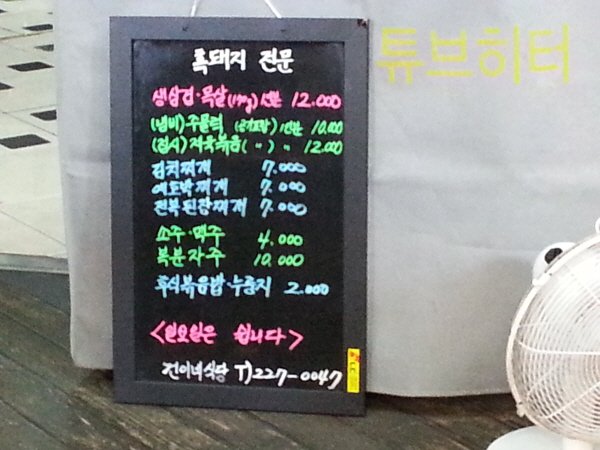 튜브히터
흑돼지 전문
생삼겹·목살(190g)1인분 12.000
(냄비)주물럭 (공기포함)1인분 10.000
(접시)제육볶음( 〃 ) 〃 12.000
김치찌개 7.000
애호박찌개 7.000
전복된장찌개 7.000
소주·맥주 4.000
복분자주 10.000
후식볶음밥·누룽지 2.000
<일요일은 쉽니다>
전이네식당 T)227-0047